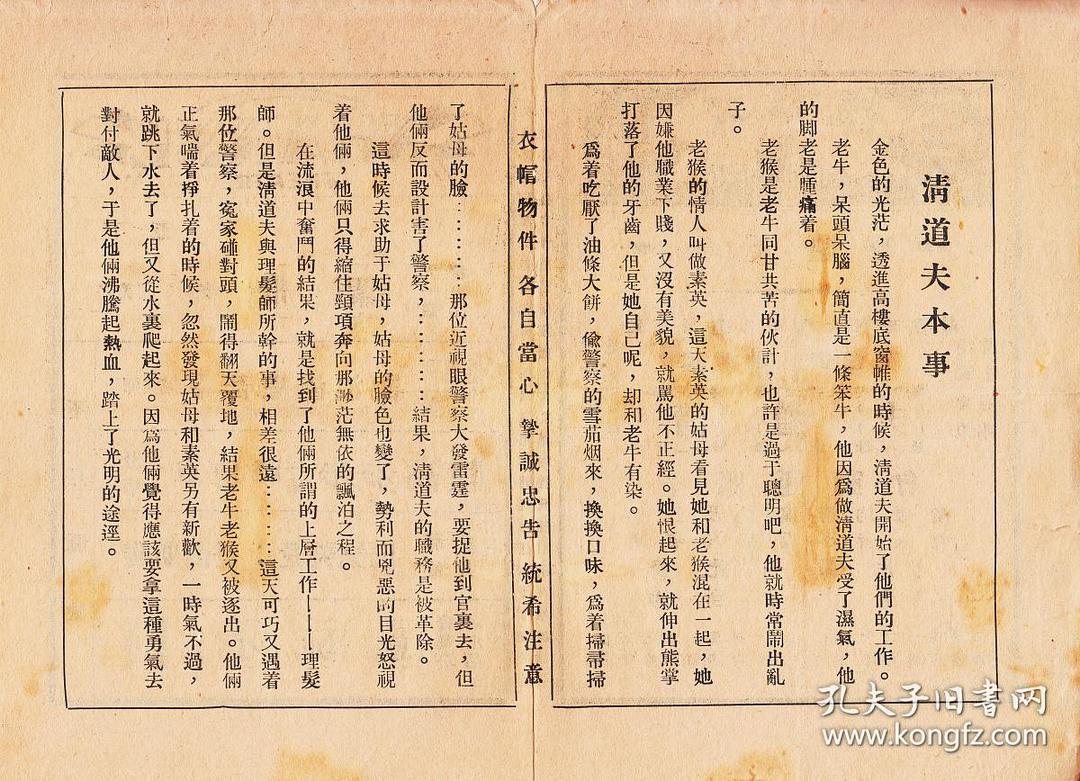 清道夫本事
金色的光茫，透進高樓底窗帷的時候，清道夫開始了他們的工作。
老牛，呆頭呆腦，簡直是一條笨牛，他因爲做清道夫受了濕氣，他
的脚老是腫痛着。
老猴是老牛同甘共苦的伙計，也許是過于聰明吧，他就時常鬧出亂
子。
老猴的情人叫做素英，這天素英的姑母看見她和老猴混在一起，她
因嫌他職業下賤，又沒有美貌，就罵他不正經。她恨起來，就伸出熊掌
打落了他的牙齒，但是她自己呢，却和老牛有染。
爲着吃厭了油條大餅，偸警察的雪茄烟來，換換口味，爲着掃帚掃
衣帽物件 各自當心 摯誠忠告 統希注意
了姑母的臉：：：：：那位近視眼警察大發雷霆，要捉他到官裏去，但
他倆反而設計害了警察，：：：：：結果，清道夫的職務是被革除。
這時候去求助于姑母，姑母的臉色也變了，勢利而兇惡的目光怒視
着他倆，他倆只得縮住頸項奔向那渺茫無依的飄泊之程。
在流浪中奮鬥的結果，就是找到了他倆所謂的上層工作————理髮
師。但是清道夫與理髮師所幹的事，相差很遠：：：：這天可巧又遇着
那位警察，寃家碰對頭，鬧得翻天覆地，結果老牛老猴又被逐出。他倆
正氣喘着掙扎着的時候，忽然發現姑母和素英另有新歡，一時氣不過，
就跳下水去了，但又從水裏爬起來。因爲他倆覺得應該要拿這種勇氣去
對付敵人，于是他倆沸騰起熱血，踏上了光明的途逕。
孔夫子旧书网
www.kongfz.com